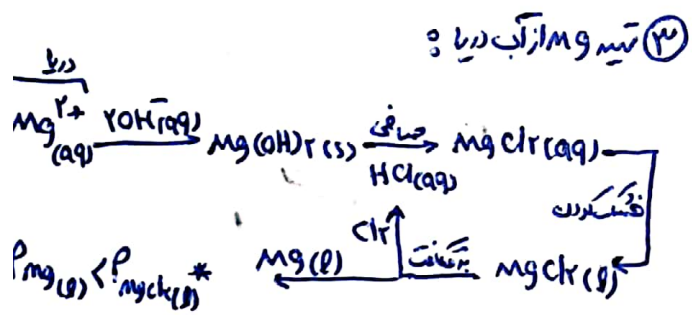 ③ تهیه Mg از آب دریا :
دریا
Mg²⁺(aq) ۲OH⁻(aq) → Mg(OH)₂(s) صافی HCl(aq) → MgCl₂(aq)
خشک کردن
MgCl₂(l) برقکافت Cl₂ Mg(l)
* ρMg(l) < ρMgCl₂(l)